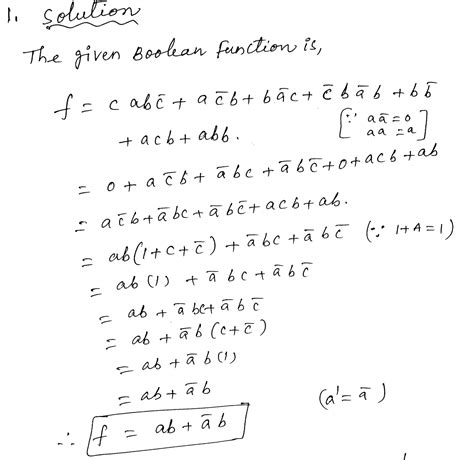 1. Solution
The given Boolean function is,
f = c a b c̄ + a c̄ b + b ā c + c̄ b ā b + b b̄
+ a c b + a b b. [∵ a ā = 0
a a = a]
= 0 + a c̄ b + ā b c + ā b c̄ + 0 + a c b + a b
= a c̄ b + ā b c + ā b c̄ + a c b + a b.
= a b (1 + c + c̄) + ā b c + ā b c̄ (∵ 1 + A = 1)
= a b (1) + ā b c + ā b c̄
= a b + ā b c + ā b c̄
= a b + ā b (c + c̄)
= a b + ā b (1)
= a b + ā b (a' = ā)
∴ f = a b + ā b